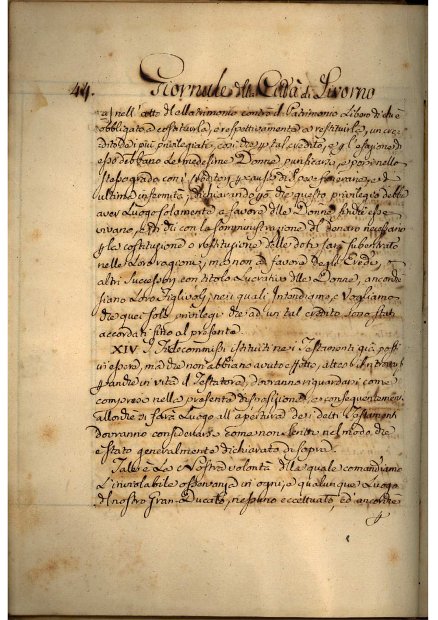 44. Giornale della Città di Livorno
nell'atto del Matrimonio contro il Patrimonio Libero di chi è
obbligato a costituirla, e respettivamente a restituirla, un cre
dito dei più privilegiati, così che per tal credito, e per le ragioni di
esso debbano le medesime Donne
stesso grado con i Creditori per causa di spese funerarie, e di
ultima infermità; dichiarando però che questo privilegio debba
aver Luogo solamente a favore delle Donne, finché esse
vivano, e di chi con la somministrazione del denaro necessario
per la costituzione o restituzione delle doti sarà subentrato
nelle Loro ragioni; mà non a favore degli Eredi, o
altri Successori con titolo Lucrativo delle Donne, ancorché
siano Loro Figlivoli, nei quali Intendiamo, e Vogliamo
che quei soli privilegi che ad un tal credito sono stati
accordati fino al presente.
XIV I Fidecommissi istituiti nei Testamenti già posti
in essere, mà che non abbiano avuto effetto,
in vita il Testatore, dovranno riguardarsi come
compresi nella presente disposizione, e conseguentemente
allorché si farà Luogo all'apertura dei detti Testamenti
dovranno considerarsi come non scritti nel modo che
è stato generalmente dichiarato di sopra.
Tale è La Nostra volontà della quale comandiamo
L'inviolabile osservanza in ogni, e qualunque Luogo
del nostro Gran-Ducato, nessuno eccettuato, ed ancorché